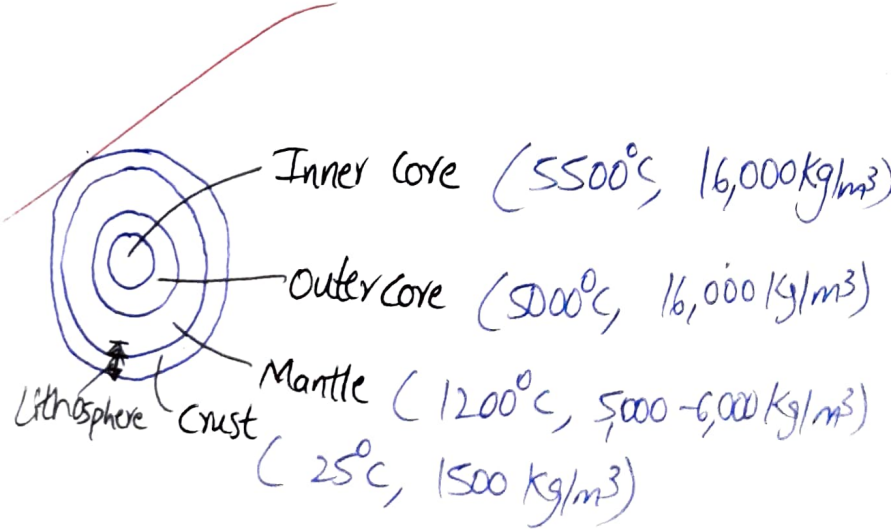 Inner Core (5500°C, 16,000 Kg/m³)
Outer Core (5000°C, 16,000 Kg/m³)
Mantle (1200°C, 5,000-6,000 Kg/m³)
Lithosphere
Crust
(25°C, 1500 Kg/m³)